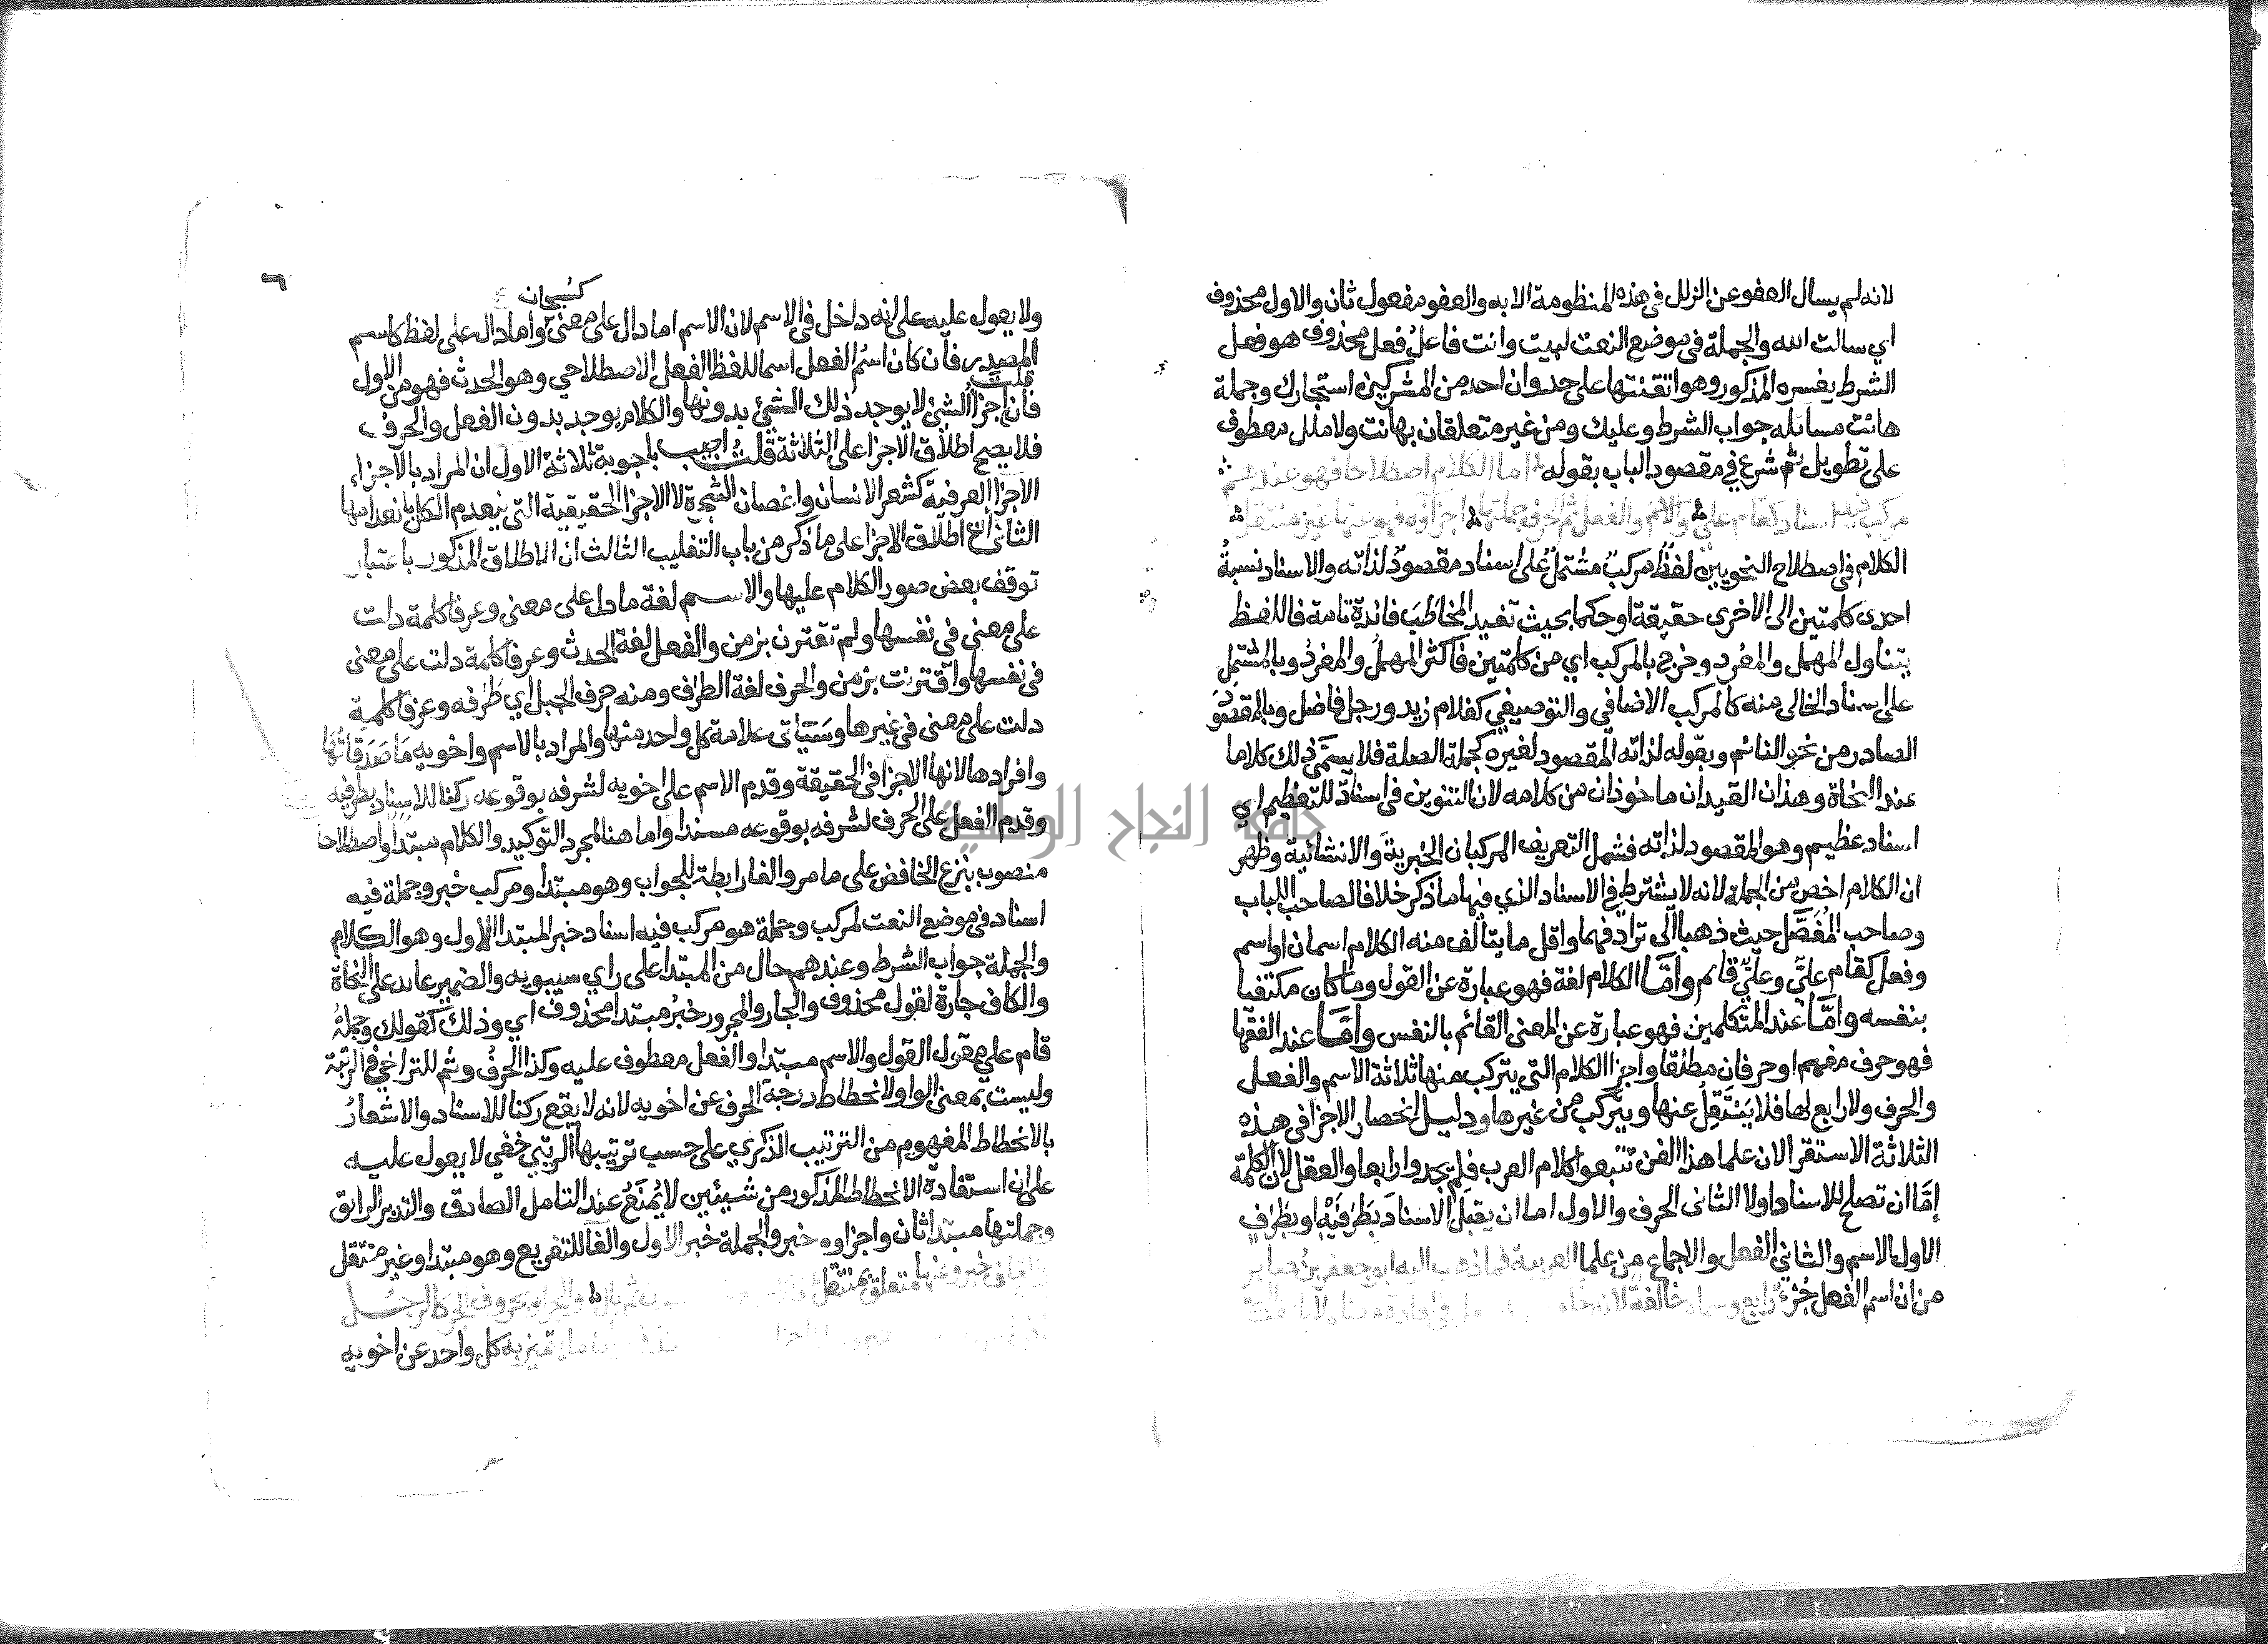 لانه لم يسال العفو عن الزلل في هذه المنظومة الا به والعفو مفعول ثان والاول محذوف
اي سالت الله والجملة في موضع النعت لبيت وانت فاعل فعل محذوف هو فعل
الشرط يفسره المذكور وهو اتقنتها على حد وان احد من المشركين استجارك وجملة
هانت مسايله جواب الشرط وعليك ومن غير متعلقان بهانت ولا ملل معطوف
على تطويل ثم شرع في مقصود الباب بقوله اما الكلام اصطلاحا فهو عندهم
مركب فيه اسناد كقام علي والاسم والفعل ثم الحرف جملتها اجزاوه فهو عنها غير منتقل
الكلام في اصطلاح النحويين لفظ مركب مشتمل على اسناد مقصود لذاته والاسناد نسبة
احدى كلمتين الى الاخرى حقيقة او حكما بحيث تفيد المخاطب فائدة تامة فاللفظ
يتناول المهمل والمفرد وخرج بالمركب اي من كلمتين فاكثر المهمل والمفرد وبالمشتمل
على اسناد الخالي منه كالمركب الاضافي والتوصيفي كغلام زيد ورجل فاضل وبالمقصود
الصادر من نحو النائم وبقوله لذاته المقصود لغيره كجملة الصلة فلا يسمى ذلك كلاما
عند النحاة وهذان القيدان ماخوذان من كلامه لان التنوين في اسناد للتعظيم اي
اسناد عظيم وهو المقصود لذاته فشمل التعريف المركبان الخبرية والانشائية وظهر
ان الكلام اخص من الجملة لانه لا يشترط في الاسناد الذي فيها ما ذكر خلافا لصاحب اللباب
وصاحب المفصل حيث ذهبا الى ترادفهما واقل ما يتالف منه الكلام اسمان او اسم
وفعل كقام علي وعلي قائم واما الكلام لغة فهو عبارة عن القول وما كان مكتفيا
بنفسه واما عند المتكلمين فهو عبارة عن المعنى القائم بالنفس واما عند الفقها
فهو حرف مفهم او حرفان مطلقا واجزا الكلام التي يتركب منها ثلاثة الاسم والفعل
والحرف ولا رابع لها فلا ينتقل عنها ويتركب من غيرها ودليل انحصار الاجزا في هذه
الثلاثة الاستقرا لان علما هذا الفن تتبعوا كلام العرب فلم يجدوا رابعا والعقل لان الكلمة
إما ان تصلح للاسناد او لا الثاني الحرف والاول اما ان يقبل الاسناد بطرفيه او بطرف
الاول الاسم والثاني الفعل والاجماع من علما العربية فما ذهب اليه ابو جعفر بن صابر
من ان اسم الفعل جزء رابع وسماه خالفة لانه
ولا يعول عليه على انه داخل في الاسم لان الاسم اما دال على معنى كسبحان واما دال على لفظ كاسم
المصدر فان كان اسم الفعل اسما للفظ الفعل الاصطلاحي وهو الحدث فهو من الاول
فان قلت اجزا الشئ لا يوجد ذلك الشئ بدونها والكلام يوجد بدون الفعل والحرف
فلا يصح اطلاق الاجزا على الثلاثة قلت اجيب باجوبة ثلاثة الاول ان المراد بالاجزاء
الاجزا العرفية كشعر الانسان واغصان الشجرة لا الاجزا الحقيقية التي ينعدم الكل بانعدامها
الثاني ان اطلاق الاجزا على ما ذكر من باب التغليب الثالث ان الاطلاق المذكور باعتبار
توقف بعض صور الكلام عليها والاسم لغة ما دل على معنى وعرفا كلمة دلت
على معنى في نفسها ولم تقترن بزمن والفعل لغة الحدث وعرفا كلمة دلت على معنى
في نفسها واقترنت بزمن والحرف لغة الطرف ومنه حرف الجبل اي طرفه وعرفا كلمة
دلت على معنى في غيرها وستاتي علامة كل واحد منها والمراد بالاسم واخويه ما صدقاتها
وافرادها لانها الاجزا في الحقيقة وقدم الاسم على اخويه لشرفه بوقوعه ركنا للاسناد بطرفيه
وقدم الفعل على الحرف لشرفه بوقوعه مسندا واما هنا لمجرد التوكيد والكلام مبتدا واصطلاحا
منصوب بنزع الخافض على ما مر والفا رابطة للجواب وهو مبتدا ومركب خبر وجملة فيه
اسناد في موضع النعت لمركب وجملة هو مركب فيه اسناد خبر المبتدا الاول وهو الكلام
والجملة جواب الشرط وعندهم حال من المبتدا على راي سيبويه والضمير عائد على النحاة
والكاف جارة لقول محذوف والجار والمجرور خبر مبتدا محذوف اي وذلك كقولك وجملة
قام علي مقول القول والاسم مبتدا والفعل معطوف عليه وكذا الحرف وثم للتراخي في الرتبة
وليست بمعنى الواو لانحطاط درجة الحرف عن اخويه لانه لا يقع ركنا للاسناد والاشعار
بالانحطاط المفهوم من الترتيب الذكري على حسب ترتيبها الرتبي خفي لا يعول عليه
على ان استفادة الانحطاط المذكور من شيئين لا يمنع عند التامل الصادق والتدبر الرائق
وجملتها مبتدا ثان واجزاوه خبر والجملة خبر الاول والفا للتفريع وهو مبتدا وغير منتقل
خبر وعنها متعلق بمنتقل
ما تميز به كل واحد عن اخويه